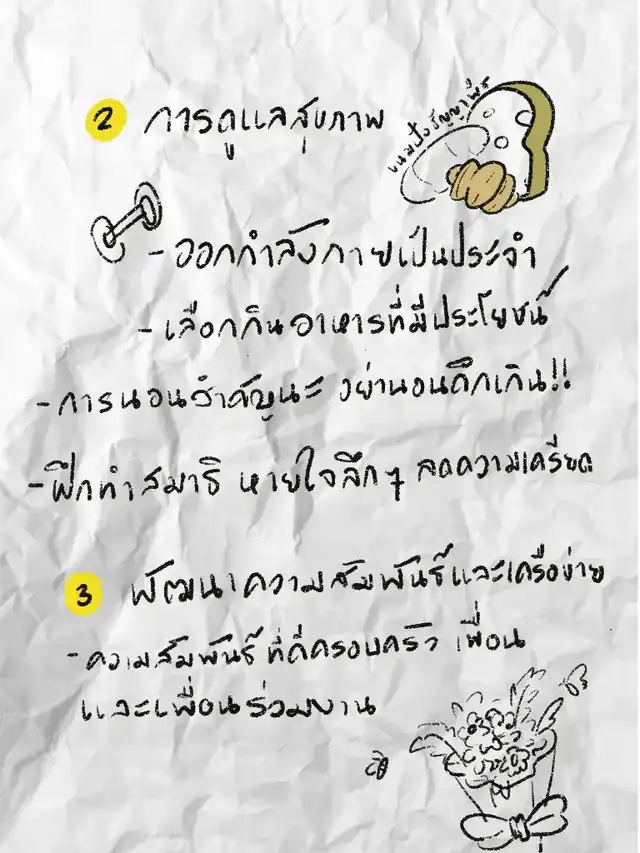 2 การดูแลสุขภาพ
ขนมปังธัญญาพืช
- ออกกำลังกายเป็นประจำ
- เลือกกินอาหารที่มีประโยชน์
- การนอนสำคัญนะ อย่านอนดึกเกิน!!
- ฝึกทำสมาธิ หายใจลึกๆ ลดความเครียด
3 พัฒนาความสัมพันธ์และเครือข่าย
- ความสัมพันธ์ที่ดีครอบครัว เพื่อน
และเพื่อนร่วมงาน